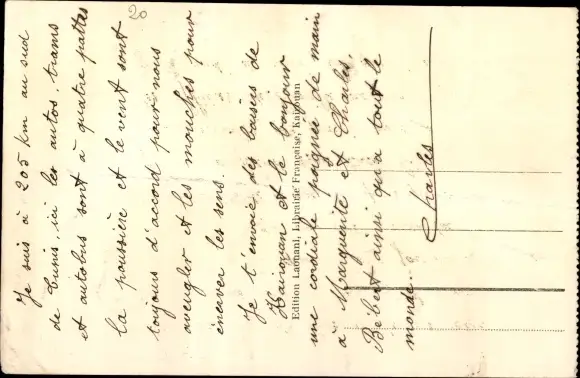 20
Je suis à 205 km au sud
de Tunis, ici les autos, trams
et autobus sont à quatre pattes
la poussière et le vent sont
toujours d'accord pour nous
aveugler et les mouches pour
énerver les sens.
Je t'envoie des baisers de
Kairouan et le bonjour
Edition Laouani, Librairie Française, Kairouan
une cordiale poignée de main
à Marguerite et Charles,
Bébert ainsi qu'a tout le
monde.
Charles